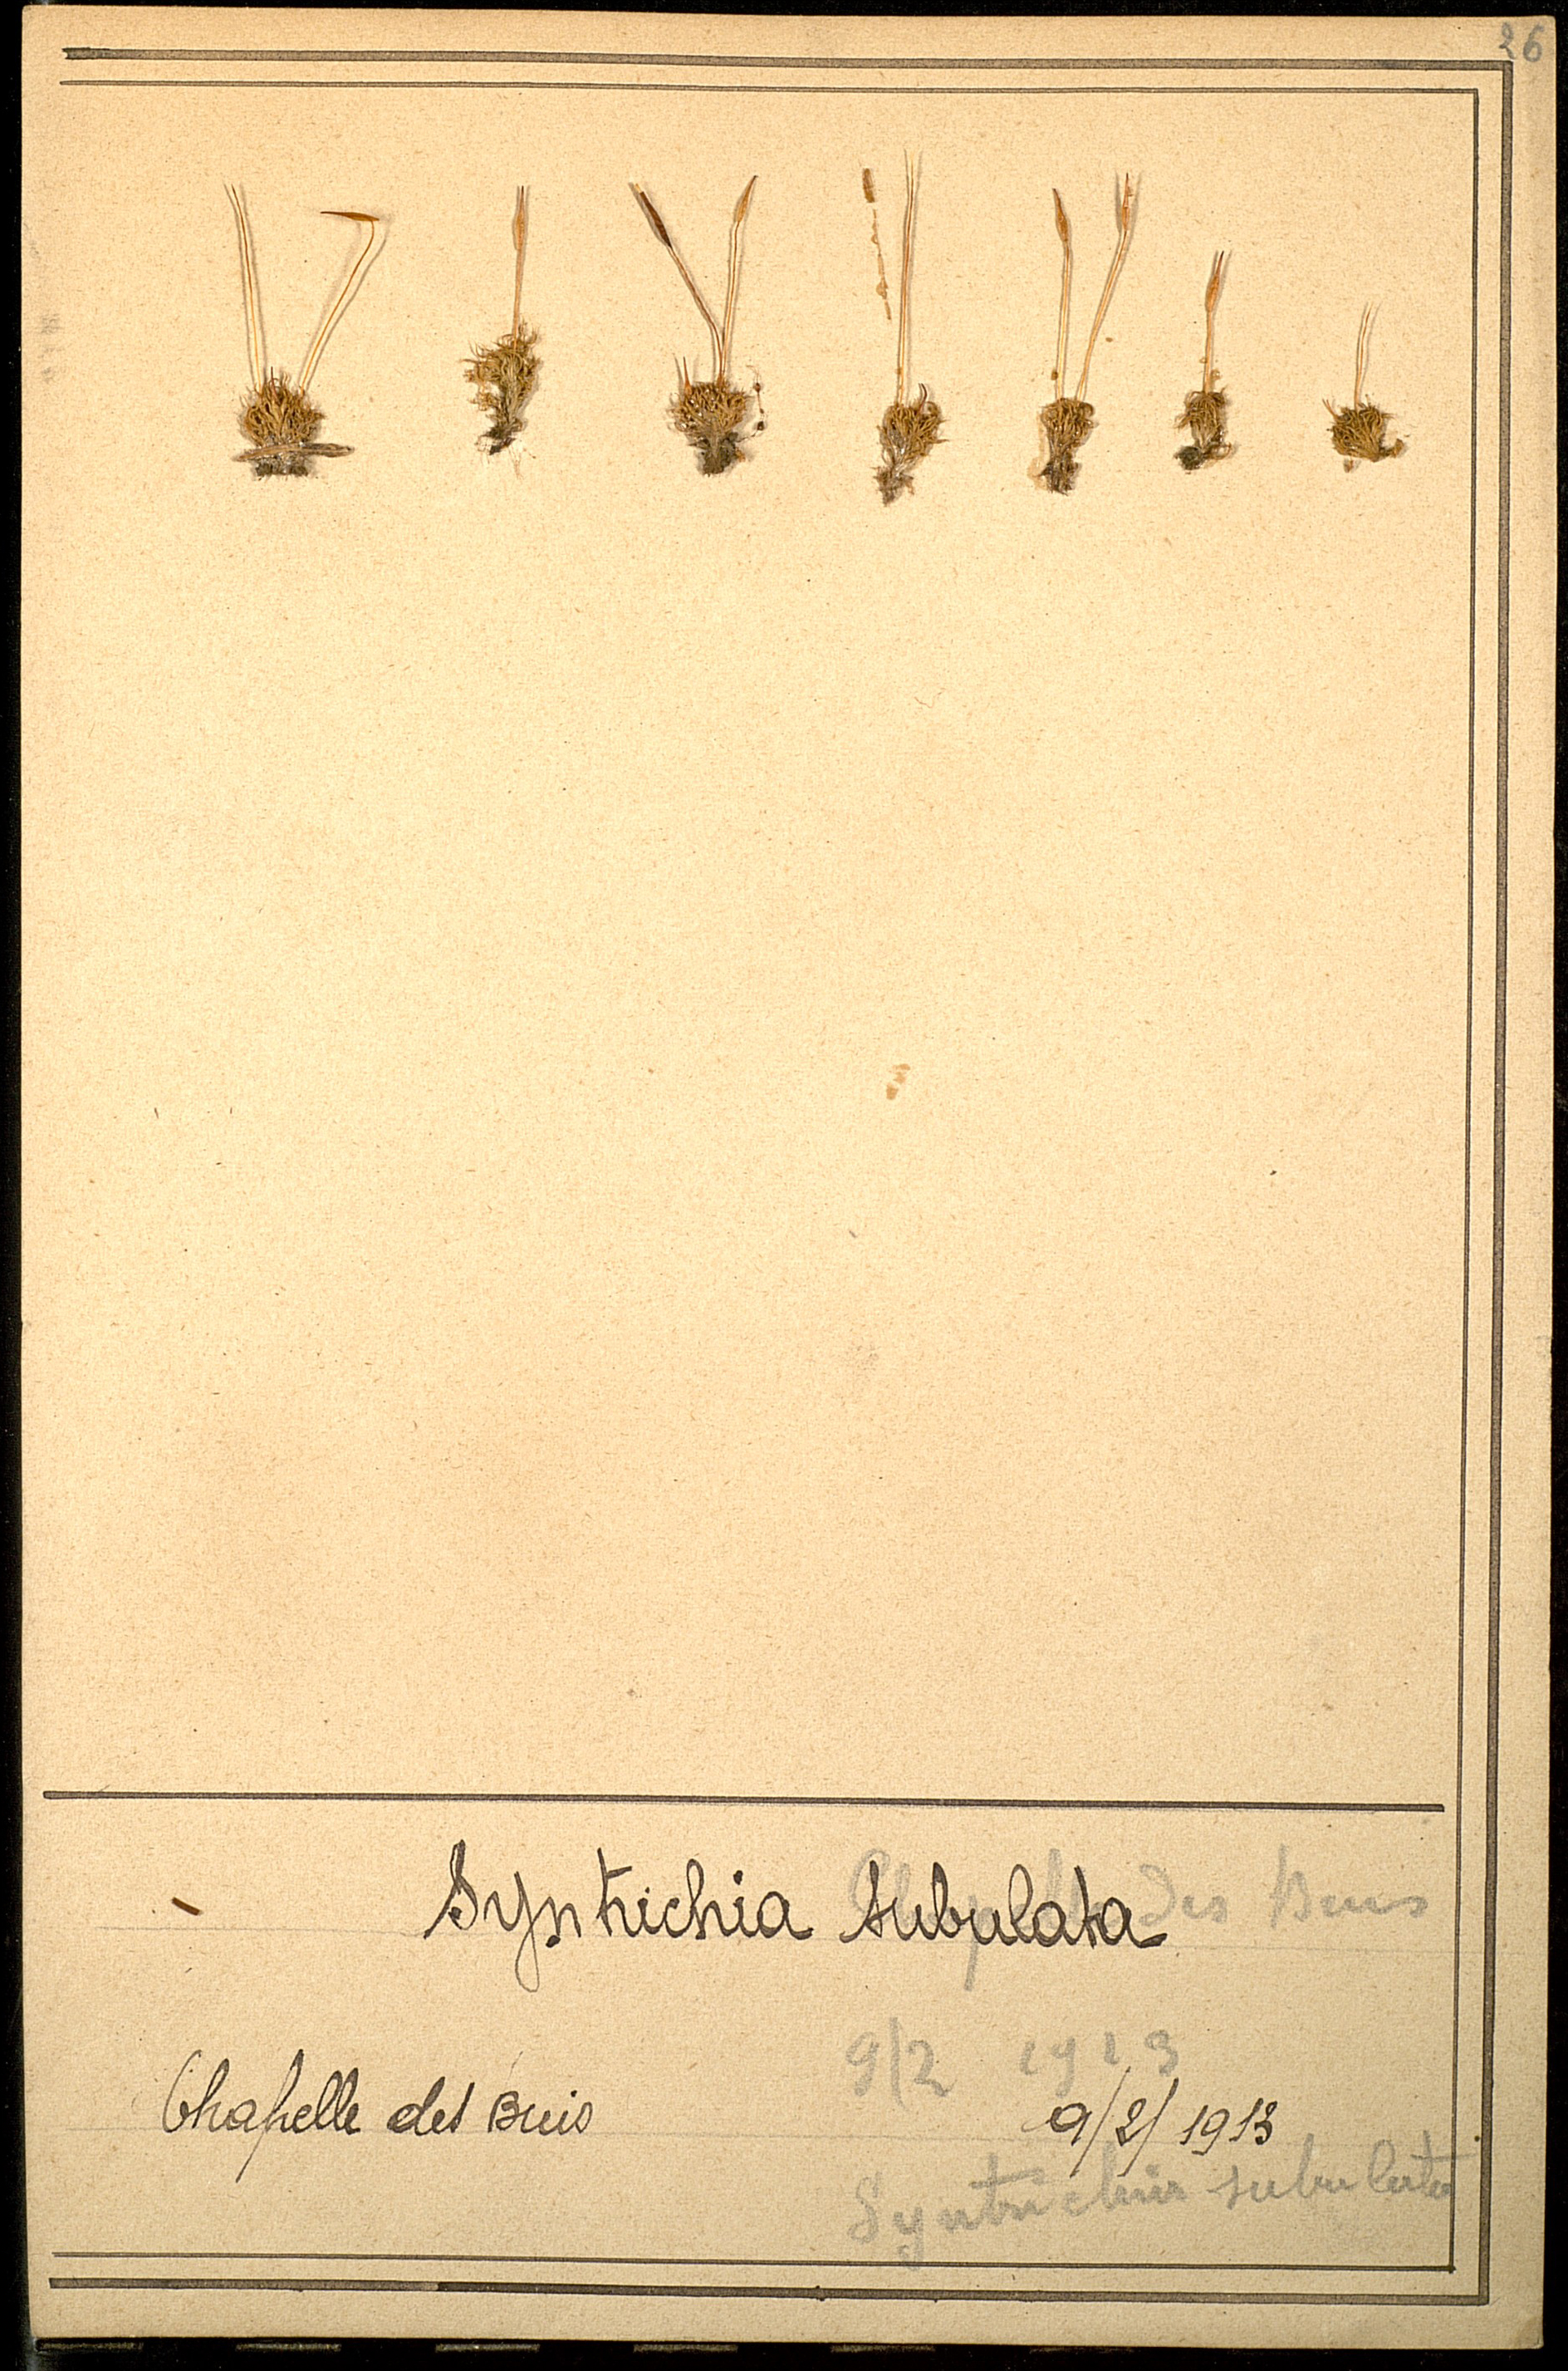 26
Syntrichia subulata
Chapelle des Buis
9/2 1913
Chapelle des Buis 9/2/1913
Syntrichia subulata